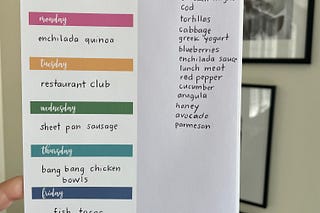 monday
enchilada quinoa
tuesday
restaurant club
wednesday
sheet pan sausage
thursday
bang bang chicken
bowls
friday
fish tacos
cod
tortillas
cabbage
greek yogurt
blueberries
enchilada sauce
lunch meat
red pepper
cucumber
arugula
honey
avocado
parmesan